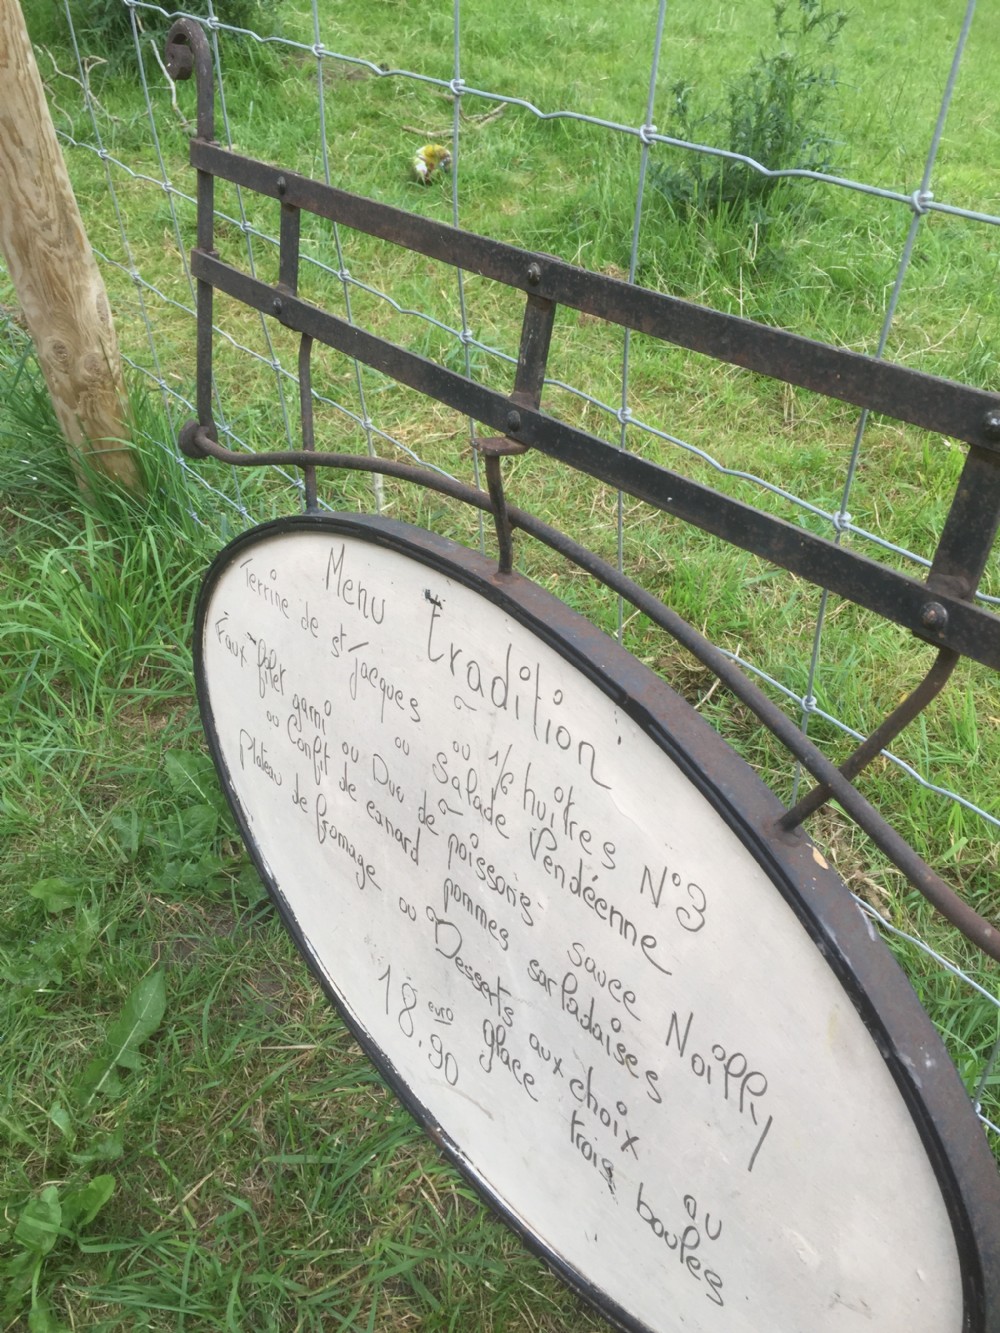 Menu tradition
Terrine de st jacques ou 1/6 huîtres N°3
~ ou Salade Vendéenne
Faux filet garni ou Duo de poissons sauce Noilly
ou Confit de canard pommes sarladaises
~
Plateau de fromage ou Desserts aux choix
ou glace trois boules
18,90 euro